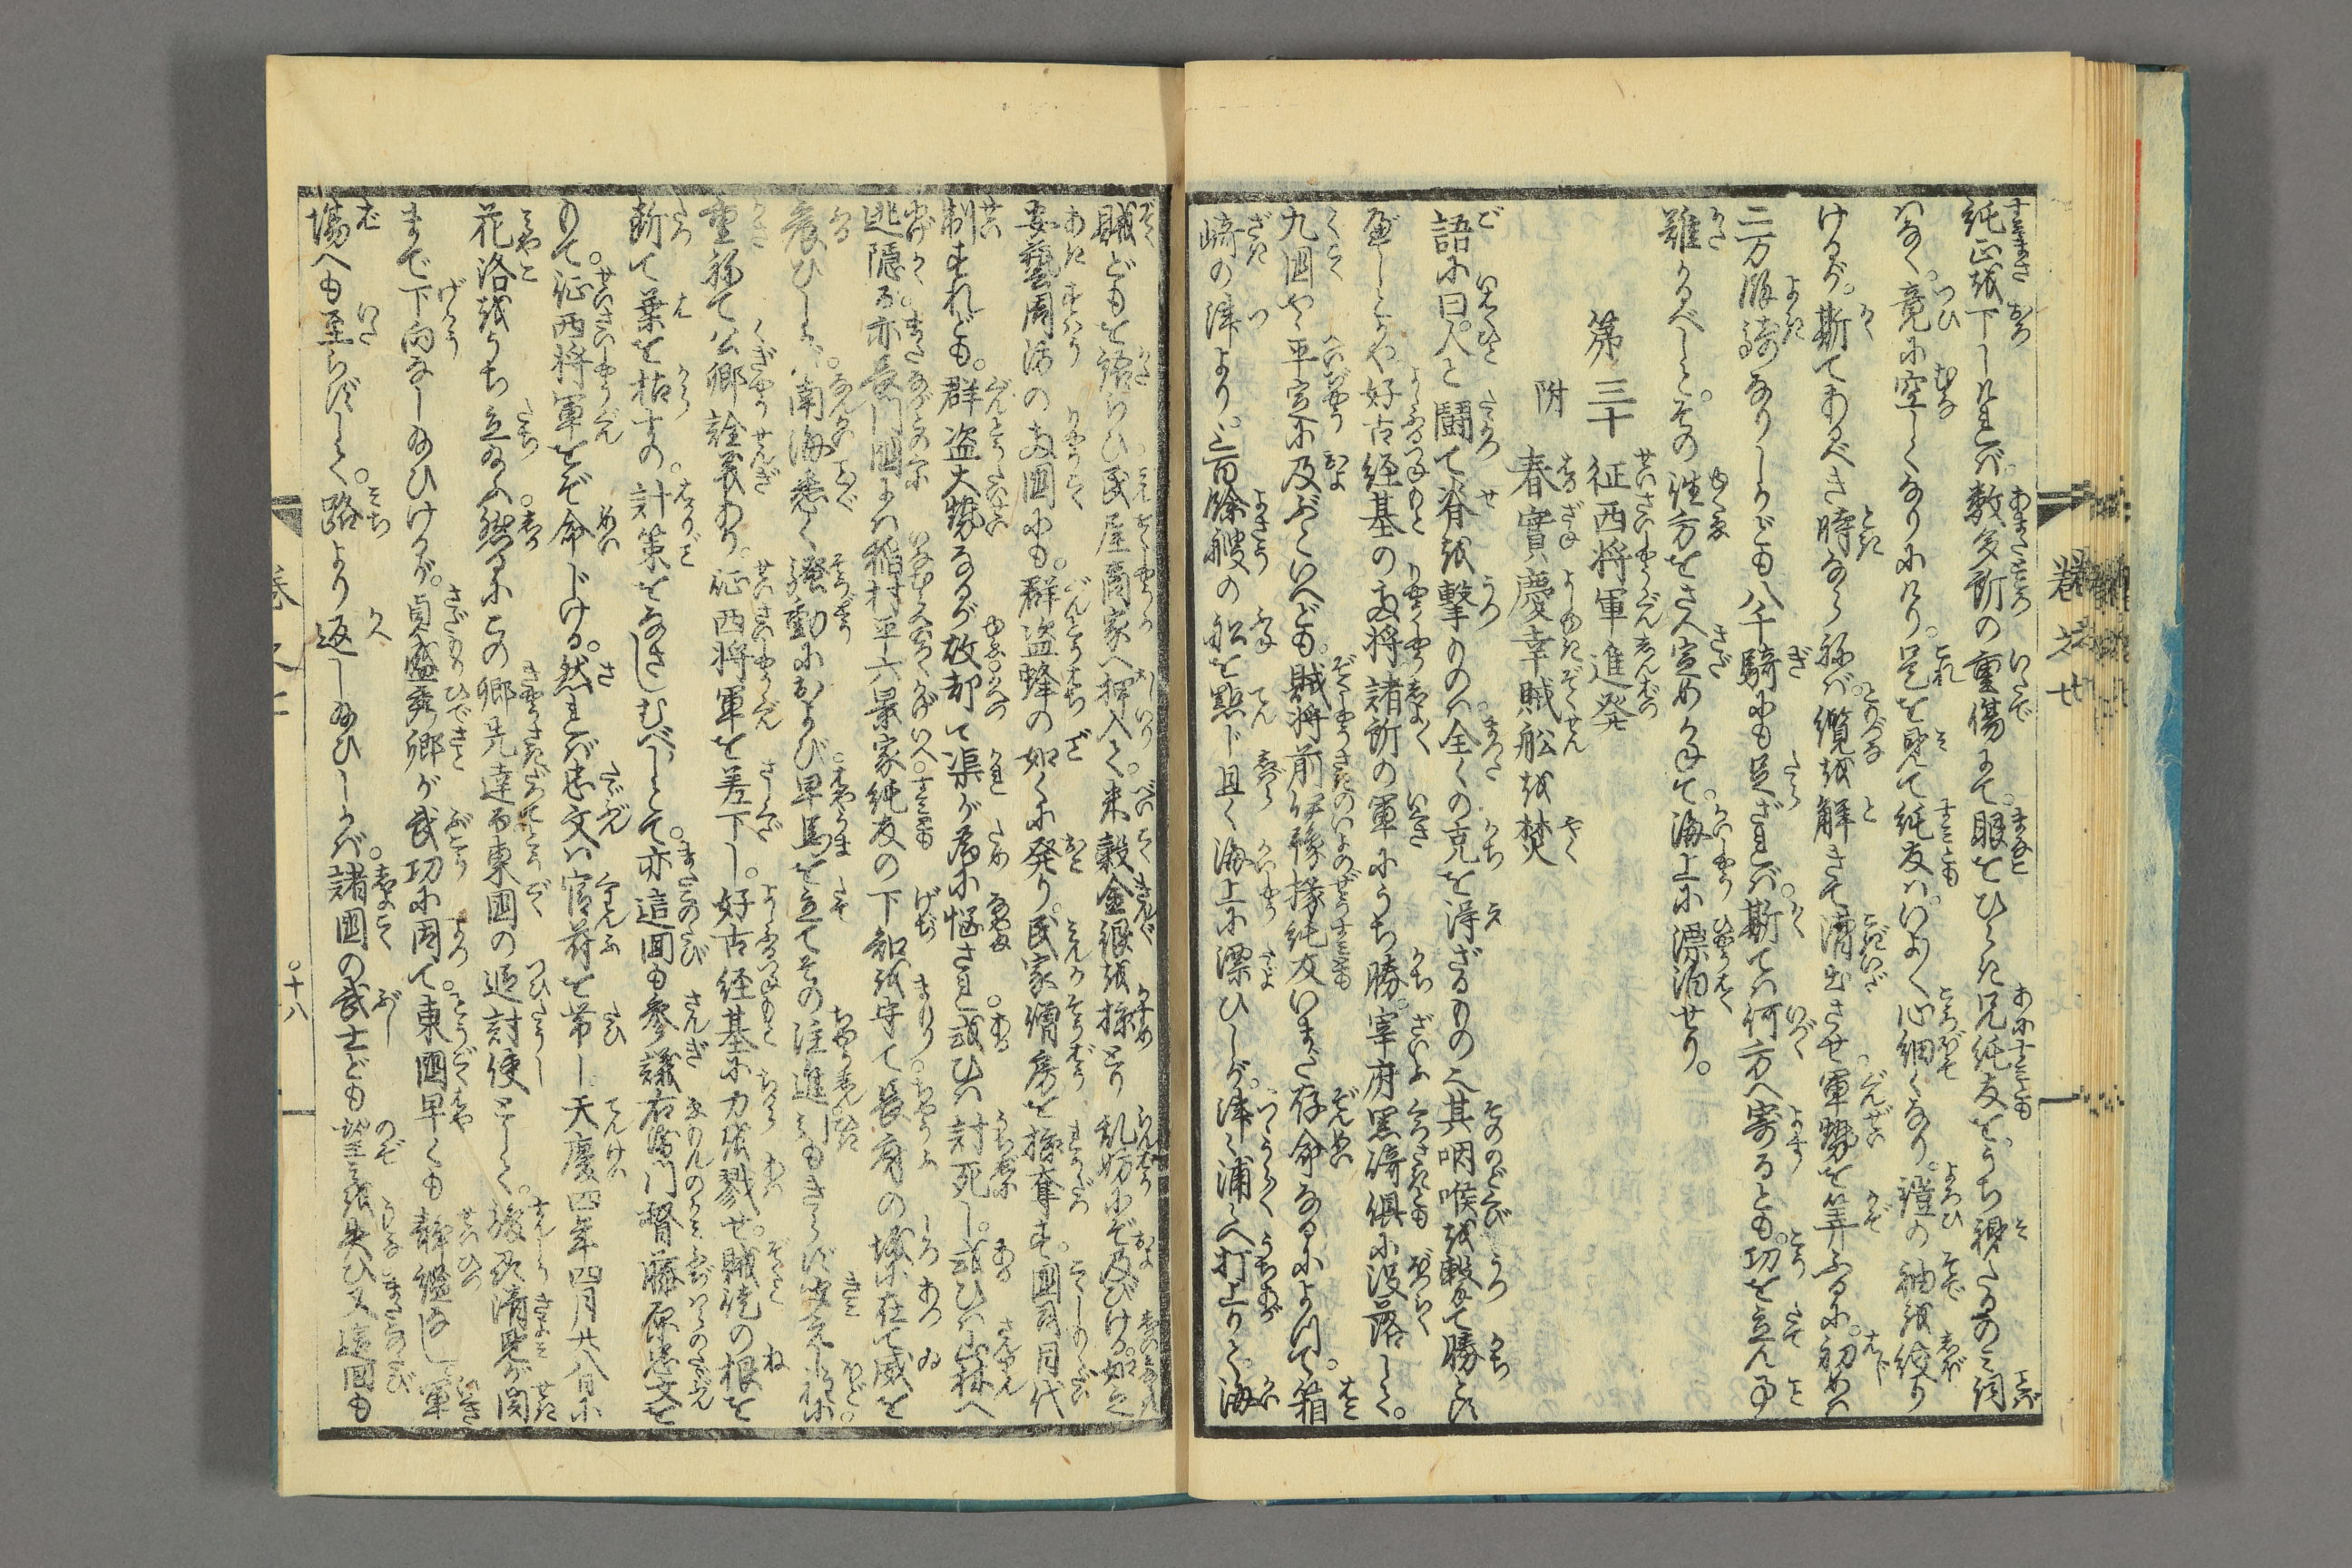 純正を下しければ。数多所の重傷にて。眼をひらき兄純友を。うち視たるのミ詞
はなく。竟に空しくなりにけり。是を見て純友ハ。いよ〳〵心細くなり。鎧の袖を絞り
けるが。斯てあるべき時ならねバ。纜を解きて漕出させ。軍勢を算ふるに。初めハ
二万餘騎なりしかども八千騎にも足ざれバ。斯てハ何方へ寄るとも。功を立ん事
難かるべしと。その往方をさへ定めかねて。海上に漂泊せり。
第三十 征西将軍進発
附 春實慶幸賊舩を焚
語に曰。人と闘て脊を撃ものハ。全くの克を得ざるもの也。其咽喉を撃て勝とハ
爰しとかや好古経基の両将諸所の軍にうち勝。宰府黒﨑倶に没落しく。
九国やゝ平定に及ぶといへども。賊将前伊豫掾純友いまだ存命なるによつて。箱
﨑の津より。三百餘艘の船を點じ且く海上に漂ひしが。津々浦々へ打上りて。海
賊どもを語らひ民屋商家へ押入て。米穀金銀を掠とり乱妨にぞ及びける。如之
安藝周防の両国にも。群盗蜂の如くに発り。民家僧房を掠奪す。國司目代
制すれども。群盗大勢なるが故却て渠が為に悩され。或ひハ討死し。或ひハ山林へ
逃隠る。亦長門國にハ稲村平六景家純友の下知を守て。長府の城に在て威を
震ひしかバ。南海悉く騒動におよび。早馬を立てその注進
重ねて公卿詮義あり。征西将軍を差下し。好古経基に力を戮せ。賊徒の根を
断て葉を枯すの。計策をなさしむべしとて。亦這回も参議右衛門督藤原忠文を
めて。征西将軍とぞ命じける。然れバ忠文ハ官符を帯し。天慶四年四月廿八日に
花洛をうち立給ふ。然るにこの卿先達而東國の追討使として。駿及清見が関
まで下向なし給ひけるが。貞盛秀郷が武功に因て。東國早くも静謐なし。軍
場へも至らずして。路より返し給ひしかバ。諸國の武士ども望を失ひ。又這回も
巻之廿
十八